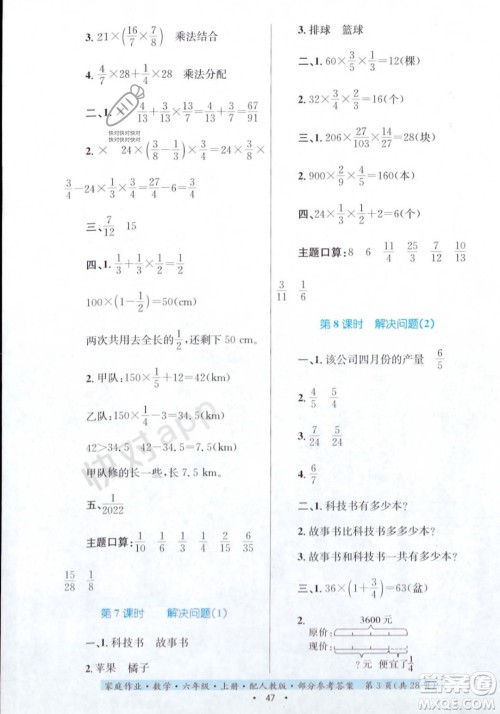 3. 21×(16/7×7/8)　乘法结合
4. 4/7×28+1/4×28　乘法分配
二、1.
4/13+1/7=4/13+3/13=67/91
2. ×　24×(3/4-1/24)=24×
3/4-24×1/24= -6=3/4
三、7/12　15
四、1. 1/3+1/3×1/2=1/2
100×(1-1/2)=50(cm)
两次共用去全长的1/2,还剩下 50 cm。
2. 甲队:150×1/5+12=42(km)
乙队:150×1/4-3=34.5(km)
42>34.5　42-34.5=7.5(km)
甲队修的长一些,长 7.5 km。
五、1/2022
主题口算:1/10　1/6　4/15　3/14　3/16　7/24
15/28　1/8
第 7 课时　解决问题(1)
一、1. 科技书　故事书
2. 苹果　橘子
3. 排球　篮球
二、1. 60×2/5×1/2=12(棵)
2. 32×3/4×2/3=16(个)
3. 206×27/103×14/27=28(块)
4. 900×2/9×4/5=160(本)
5. 24×1/3×1/4+2=4(个)
主题口算:8　6　11/4　25/3　12/5　7/10　7/13
3/11　1/6
第 8 课时　解决问题(2)
一、1. 该公司四月份的产量　6/5
2. 4/5　4/5
3. 7/24　5/24
4. 6/7
二、1. 科技书有多少本?
2. 故事书比科技书多多少本?
3. 故事书和科技书一共有多少本?
三、1. 36×(1+3/4)=63(盆)
2.
3600 元
原价:
现价:
便宜了1/4
家庭作业·数学·六年级·上册·配人教版·部分参考答案　第 3 页(共 28
47
快对app
快对快对快对
快对快对快对